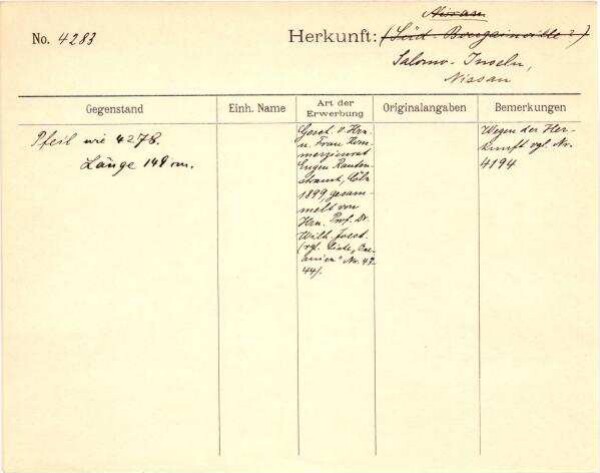 Nissan
No. 4283
Herkunft: (Süd-Bougainville?)
Salomo-Inseln,
Nissan
Gegenstand
Einh. Name
Art der
Erwerbung
Originalangaben
Bemerkungen
Pfeil wie 4278.
Länge 148 cm.
Gesch. v. Hrn.
u. Frau Kom-
merzienrat
Eugen Rauten-
strauch, Cöln
1899, gesam-
melt von
Hrn. Prof. Dr.
Wilh. Joest.
(vgl. Liste „Oce-
anien" Nr. 43.
44).
Wegen der Her-
kunft vgl. Nr.
4194